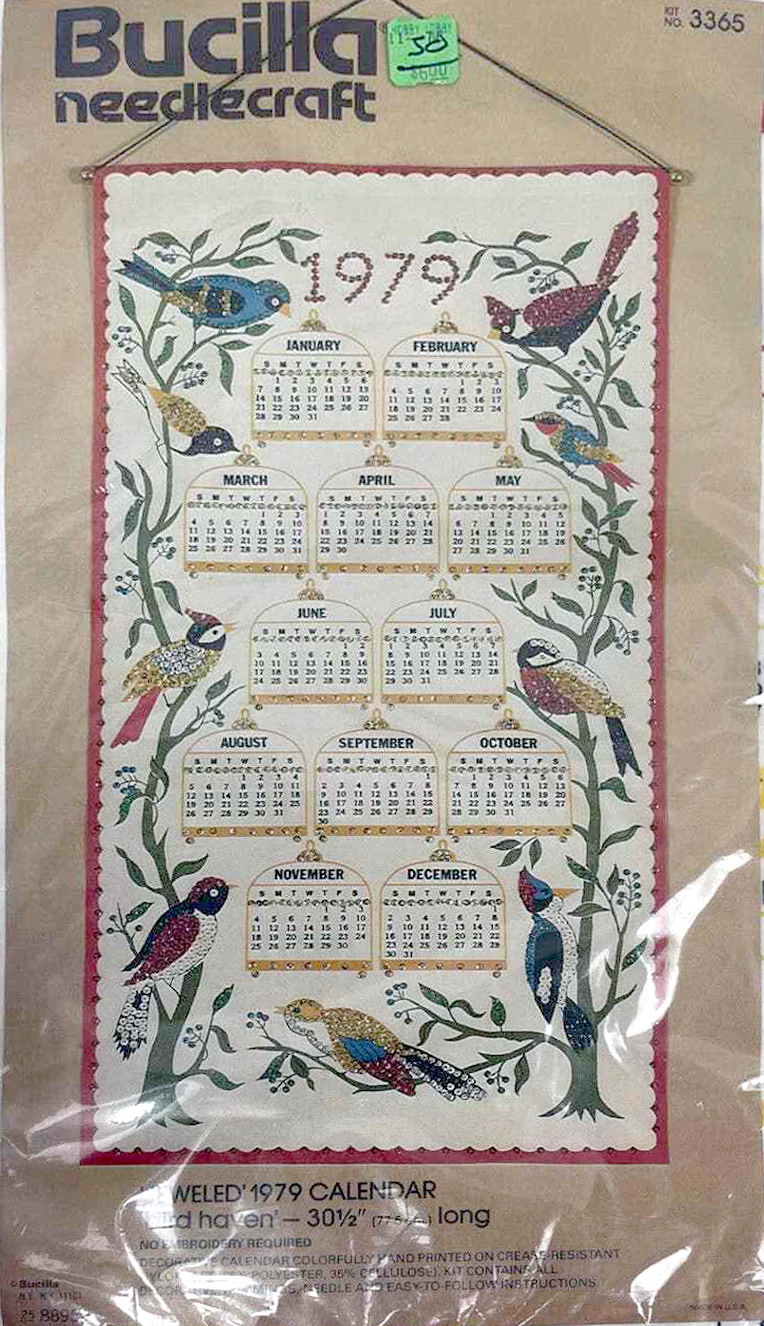 Bucilla®
needlecraft
KIT
NO. 3365
HOBBY LOBBY
50
$6.00
1979
JANUARY
S M T W T F S
1 2 3 4 5 6
7 8 9 10 11 12 13
14 15 16 17 18 19 20
21 22 23 24 25 26 27
28 29 30 31
FEBRUARY
S M T W T F S
1 2 3
4 5 6 7 8 9 10
11 12 13 14 15 16 17
18 19 20 21 22 23 24
25 26 27 28
MARCH
S M T W T F S
1 2 3
4 5 6 7 8 9 10
11 12 13 14 15 16 17
18 19 20 21 22 23 24
25 26 27 28 29 30 31
APRIL
S M T W T F S
1 2 3 4 5 6 7
8 9 10 11 12 13 14
15 16 17 18 19 20 21
22 23 24 25 26 27 28
29 30
MAY
S M T W T F S
1 2 3 4 5
6 7 8 9 10 11 12
13 14 15 16 17 18 19
20 21 22 23 24 25 26
27 28 29 30 31
JUNE
S M T W T F S
1 2
3 4 5 6 7 8 9
10 11 12 13 14 15 16
17 18 19 20 21 22 23
24 25 26 27 28 29 30
JULY
S M T W T F S
1 2 3 4 5 6 7
8 9 10 11 12 13 14
15 16 17 18 19 20 21
22 23 24 25 26 27 28
29 30 31
AUGUST
S M T W T F S
1 2 3 4
5 6 7 8 9 10 11
12 13 14 15 16 17 18
19 20 21 22 23 24 25
26 27 28 29 30 31
SEPTEMBER
S M T W T F S
1
2 3 4 5 6 7 8
9 10 11 12 13 14 15
16 17 18 19 20 21 22
23 24 25 26 27 28 29
30
OCTOBER
S M T W T F S
1 2 3 4 5 6
7 8 9 10 11 12 13
14 15 16 17 18 19 20
21 22 23 24 25 26 27
28 29 30 31
NOVEMBER
S M T W T F S
1 2 3
4 5 6 7 8 9 10
11 12 13 14 15 16 17
18 19 20 21 22 23 24
25 26 27 28 29 30
DECEMBER
S M T W T F S
1
2 3 4 5 6 7 8
9 10 11 12 13 14 15
16 17 18 19 20 21 22
23 24 25 26 27 28 29
30 31
'JEWELED' 1979 CALENDAR
'bird haven' – 30½" long
NO EMBROIDERY REQUIRED
DECORATIVE CALENDAR COLORFULLY HAND PRINTED ON CREASE-RESISTANT
POLYESTER, 35% CELLULOSE). KIT CONTAINS ALL
NEEDLE AND EASY-TO-FOLLOW INSTRUCTIONS
© Bucilla
N.Y. N.Y. 11101
25 8895
MADE IN U.S.A.